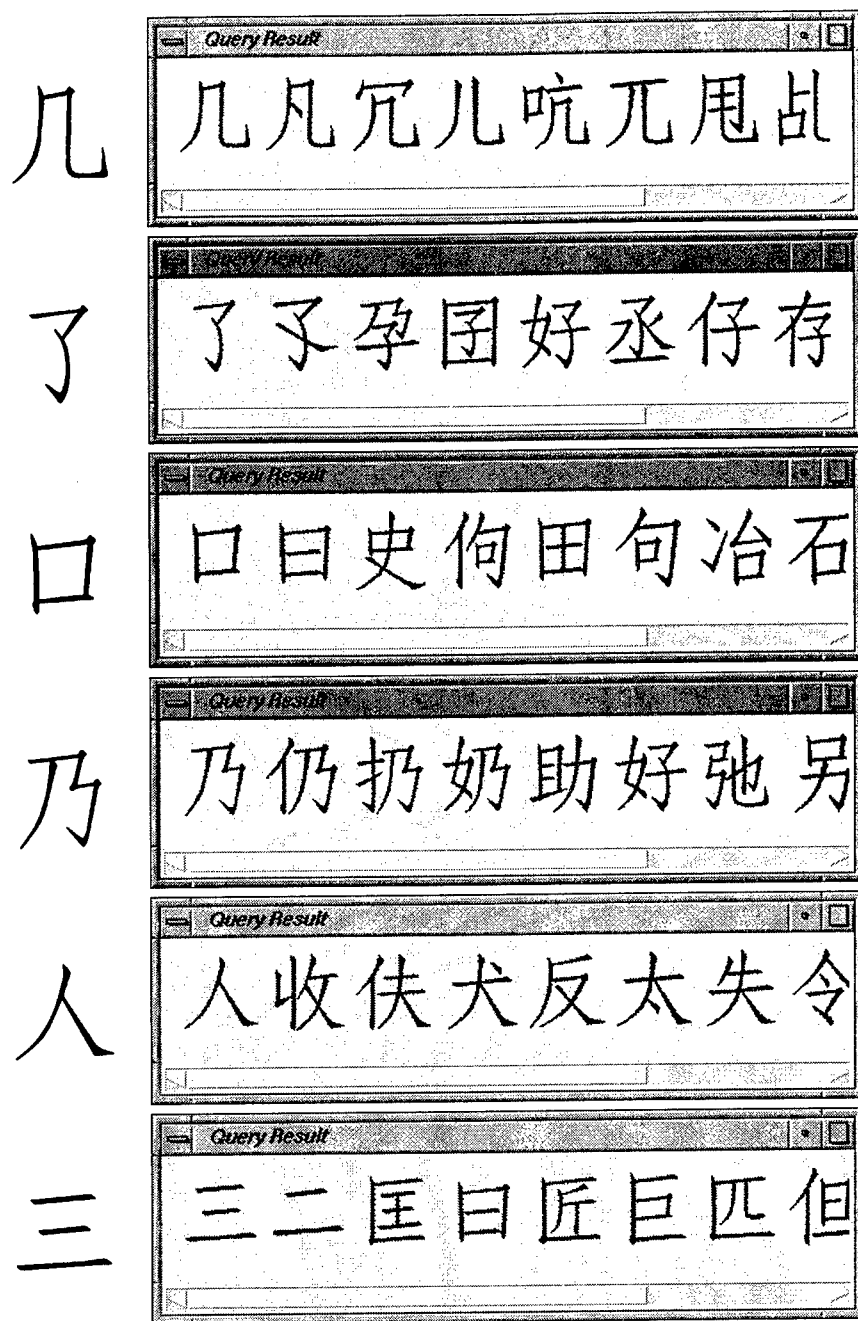 Query Result
几 几 凡 冗 儿 吭 兀 甩 乩
Query Result
了 了 孓 孕 囝 好 丞 仔 存
Query Result
口 口 曰 史 佝 田 句 冶 石
Query Result
乃 乃 仍 扔 奶 助 好 弛 另
Query Result
人 人 收 伕 犬 反 太 失 令
Query Result
三 三 二 匡 曰 匠 巨 匹 但